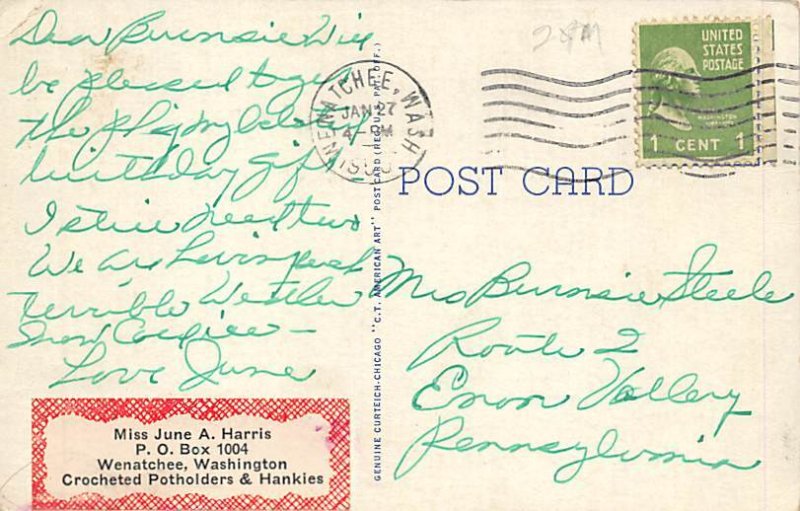 Dear Burnsie Will
be pleased to get
the
birthday gift
I still need two
We are having such
terrible Weather
Snow Cold ice —
Love June
Miss June A. Harris
P. O. Box 1004
Wenatchee, Washington
Crocheted Potholders & Hankies
GENUINE CURTEICH-CHICAGO "C.T. AMERICAN ART" POST CARD (REG. U.S. PAT. OFF.)
WENATCHEE, WASH
JAN 27
4 PM
UNITED
STATES
POSTAGE
WASHINGTON
1 CENT 1
POST CARD
Mrs Burnsie Steele
Route 2
Enon Valley
Pennsylvania